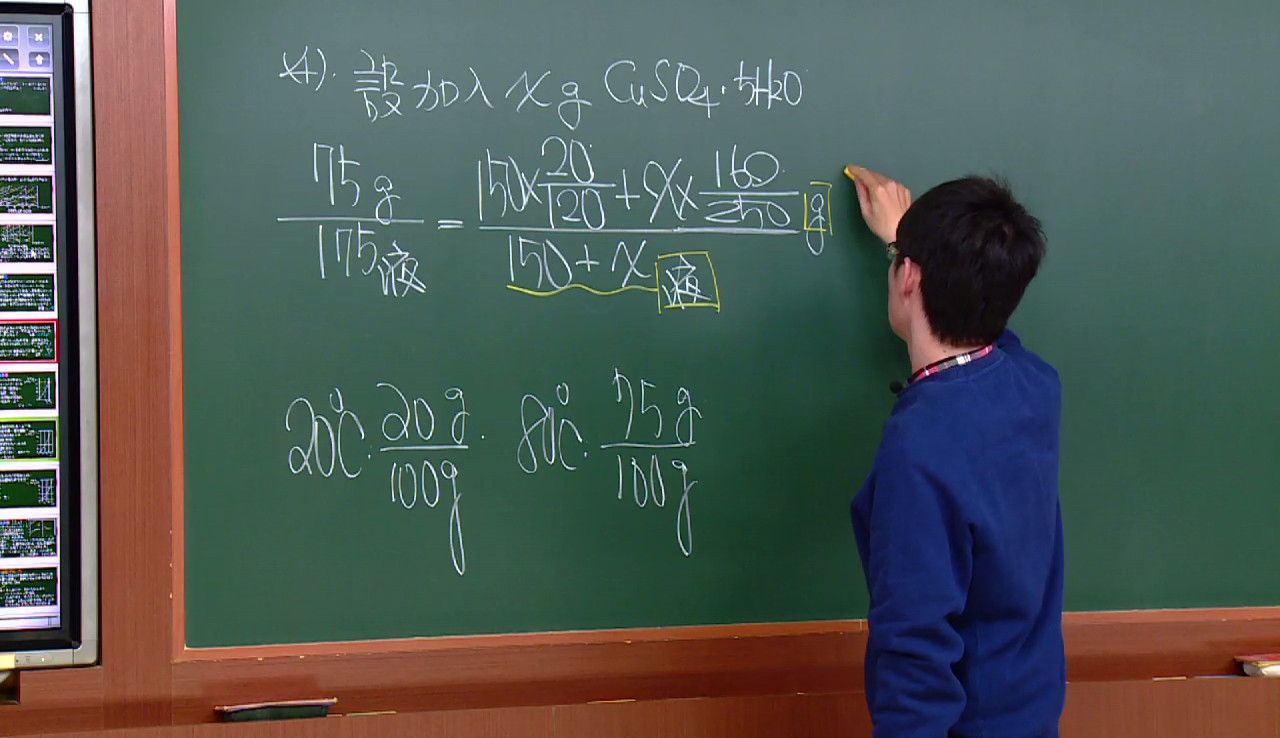 (4). 設加入 x g CuSO4·5H2O
75g / 175液 = 150×20/120 + x×160/250 g / 150+x 液
20℃. 20g/100g. 80℃. 75g/100g